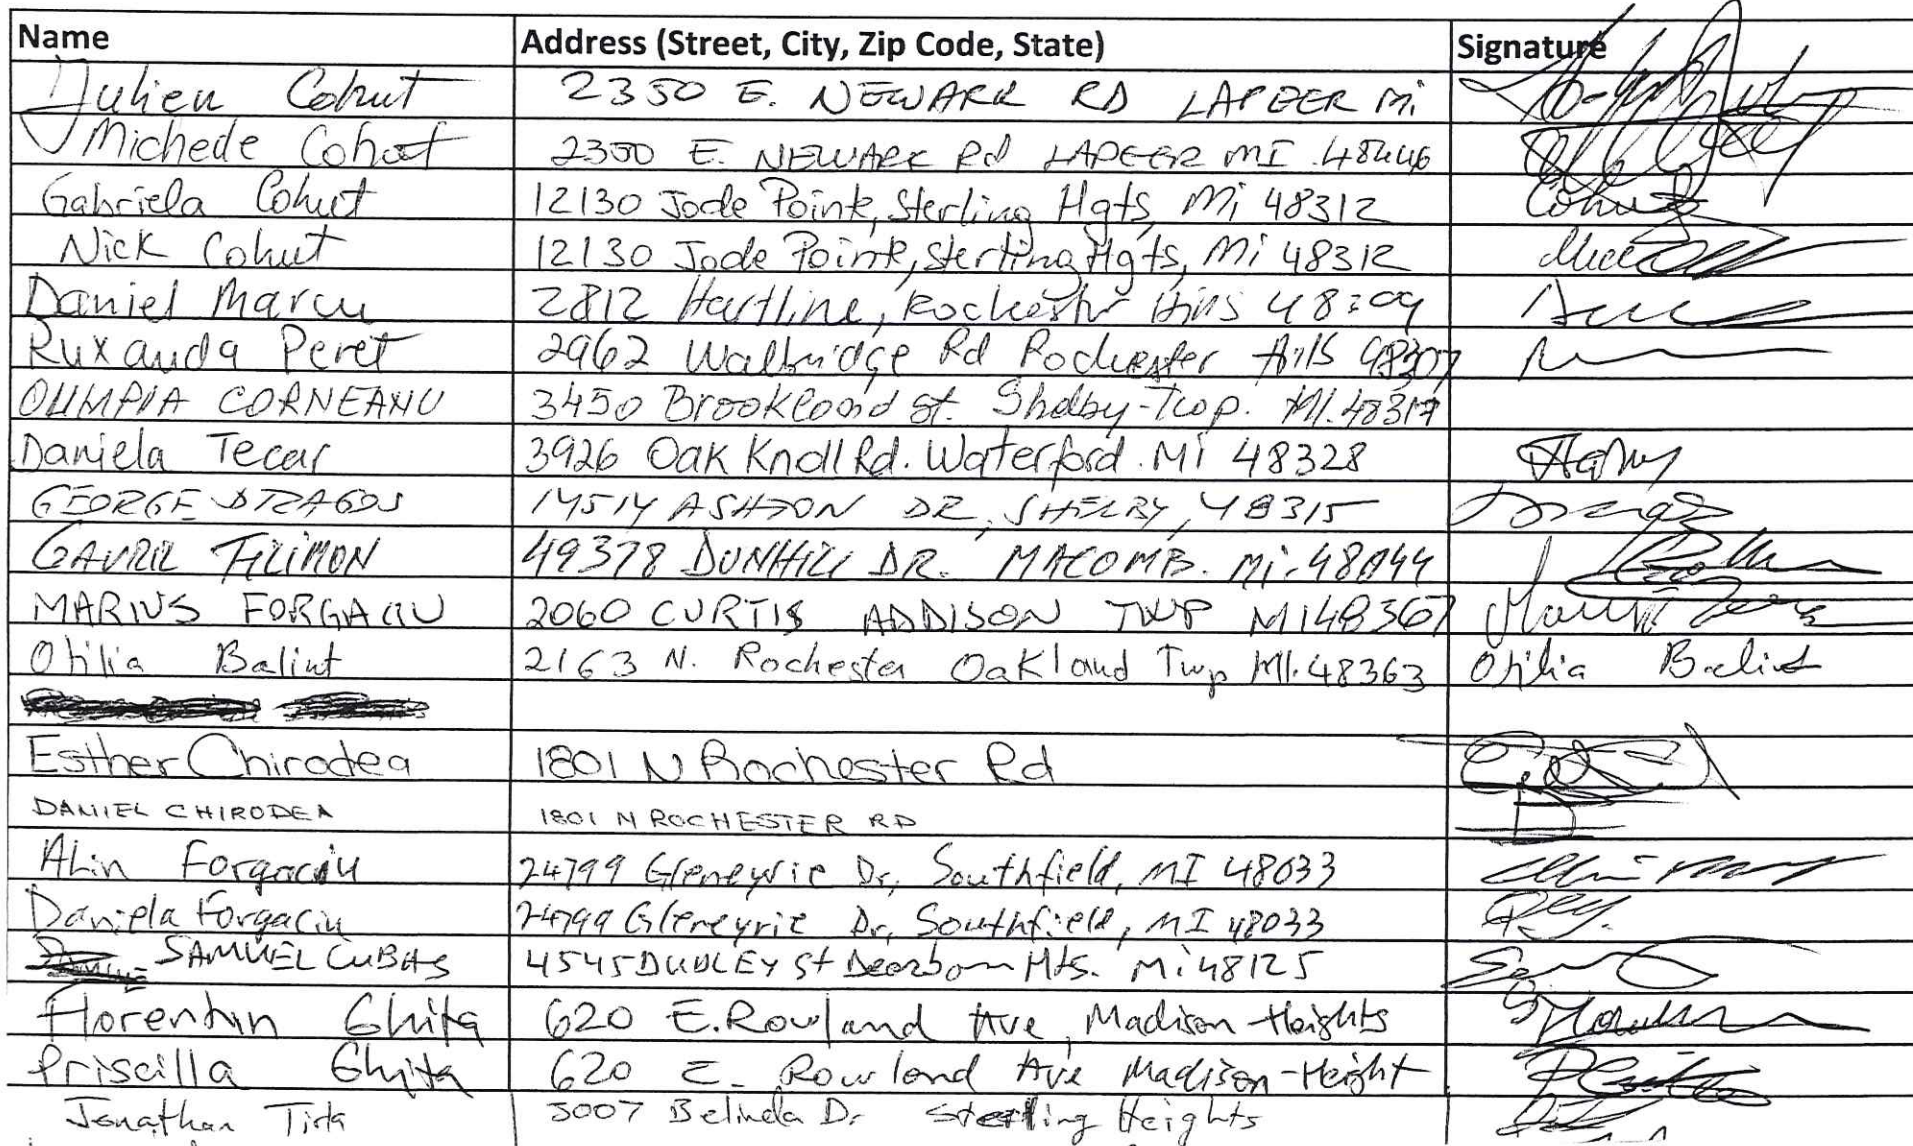 Name Address (Street, City, Zip Code, State) Signature
Julien Cohut 2350 E. NEWARK RD LAPEER Mi
Michede Cohut 2350 E. NEWARK Rd LAPEER MI 48446
Gabriela Cohut 12130 Jode Pointe, Sterling Hgts, Mi 48312 Cohut
Nick Cohut 12130 Jode Pointe, Sterling Hgts, Mi 48312
Daniel Marcu 2812 Hartline, Rochester Hills 48309
Ruxanda Peret 2962 Walbridge Rd Rochester Hills 48307
OLIMPIA CORNEANU 3450 Brookland st. Shelby-Twp. MI. 48317
Daniela Tecar 3926 Oak Knoll Rd. Waterford. Mi 48328
GEORGE DRAGOS 14514 ASHTON DR, SHELBY, 48315 Dragos
GAVRIL FILIMON 49378 DUNHILL DR. MACOMB. Mi. 48044
MARIUS FORGACIU 2060 CURTIS ADDISON TWP MI 48367
Otilia Balint 2163 N. Rochester Oakland Twp MI. 48363 Otilia Balint
Esther Chirodea 1801 N Rochester Rd
DANIEL CHIRODEA 1801 N ROCHESTER RD
Alin Forgaciu 24799 Gleneyrie Dr, Southfield, MI 48033
Daniela Forgaciu 24799 Gleneyrie Dr, Southfield, MI 48033
SAMUEL CUBAS 4545 DUDLEY St Dearborn Hts. Mi 48125
Florentin Ghita 620 E. Rowland Ave, Madison-Heights
Priscilla Ghita 620 E. Rowland Ave Madison-Height
Jonathan Tirla 3007 Belinda Dr Sterling Heights